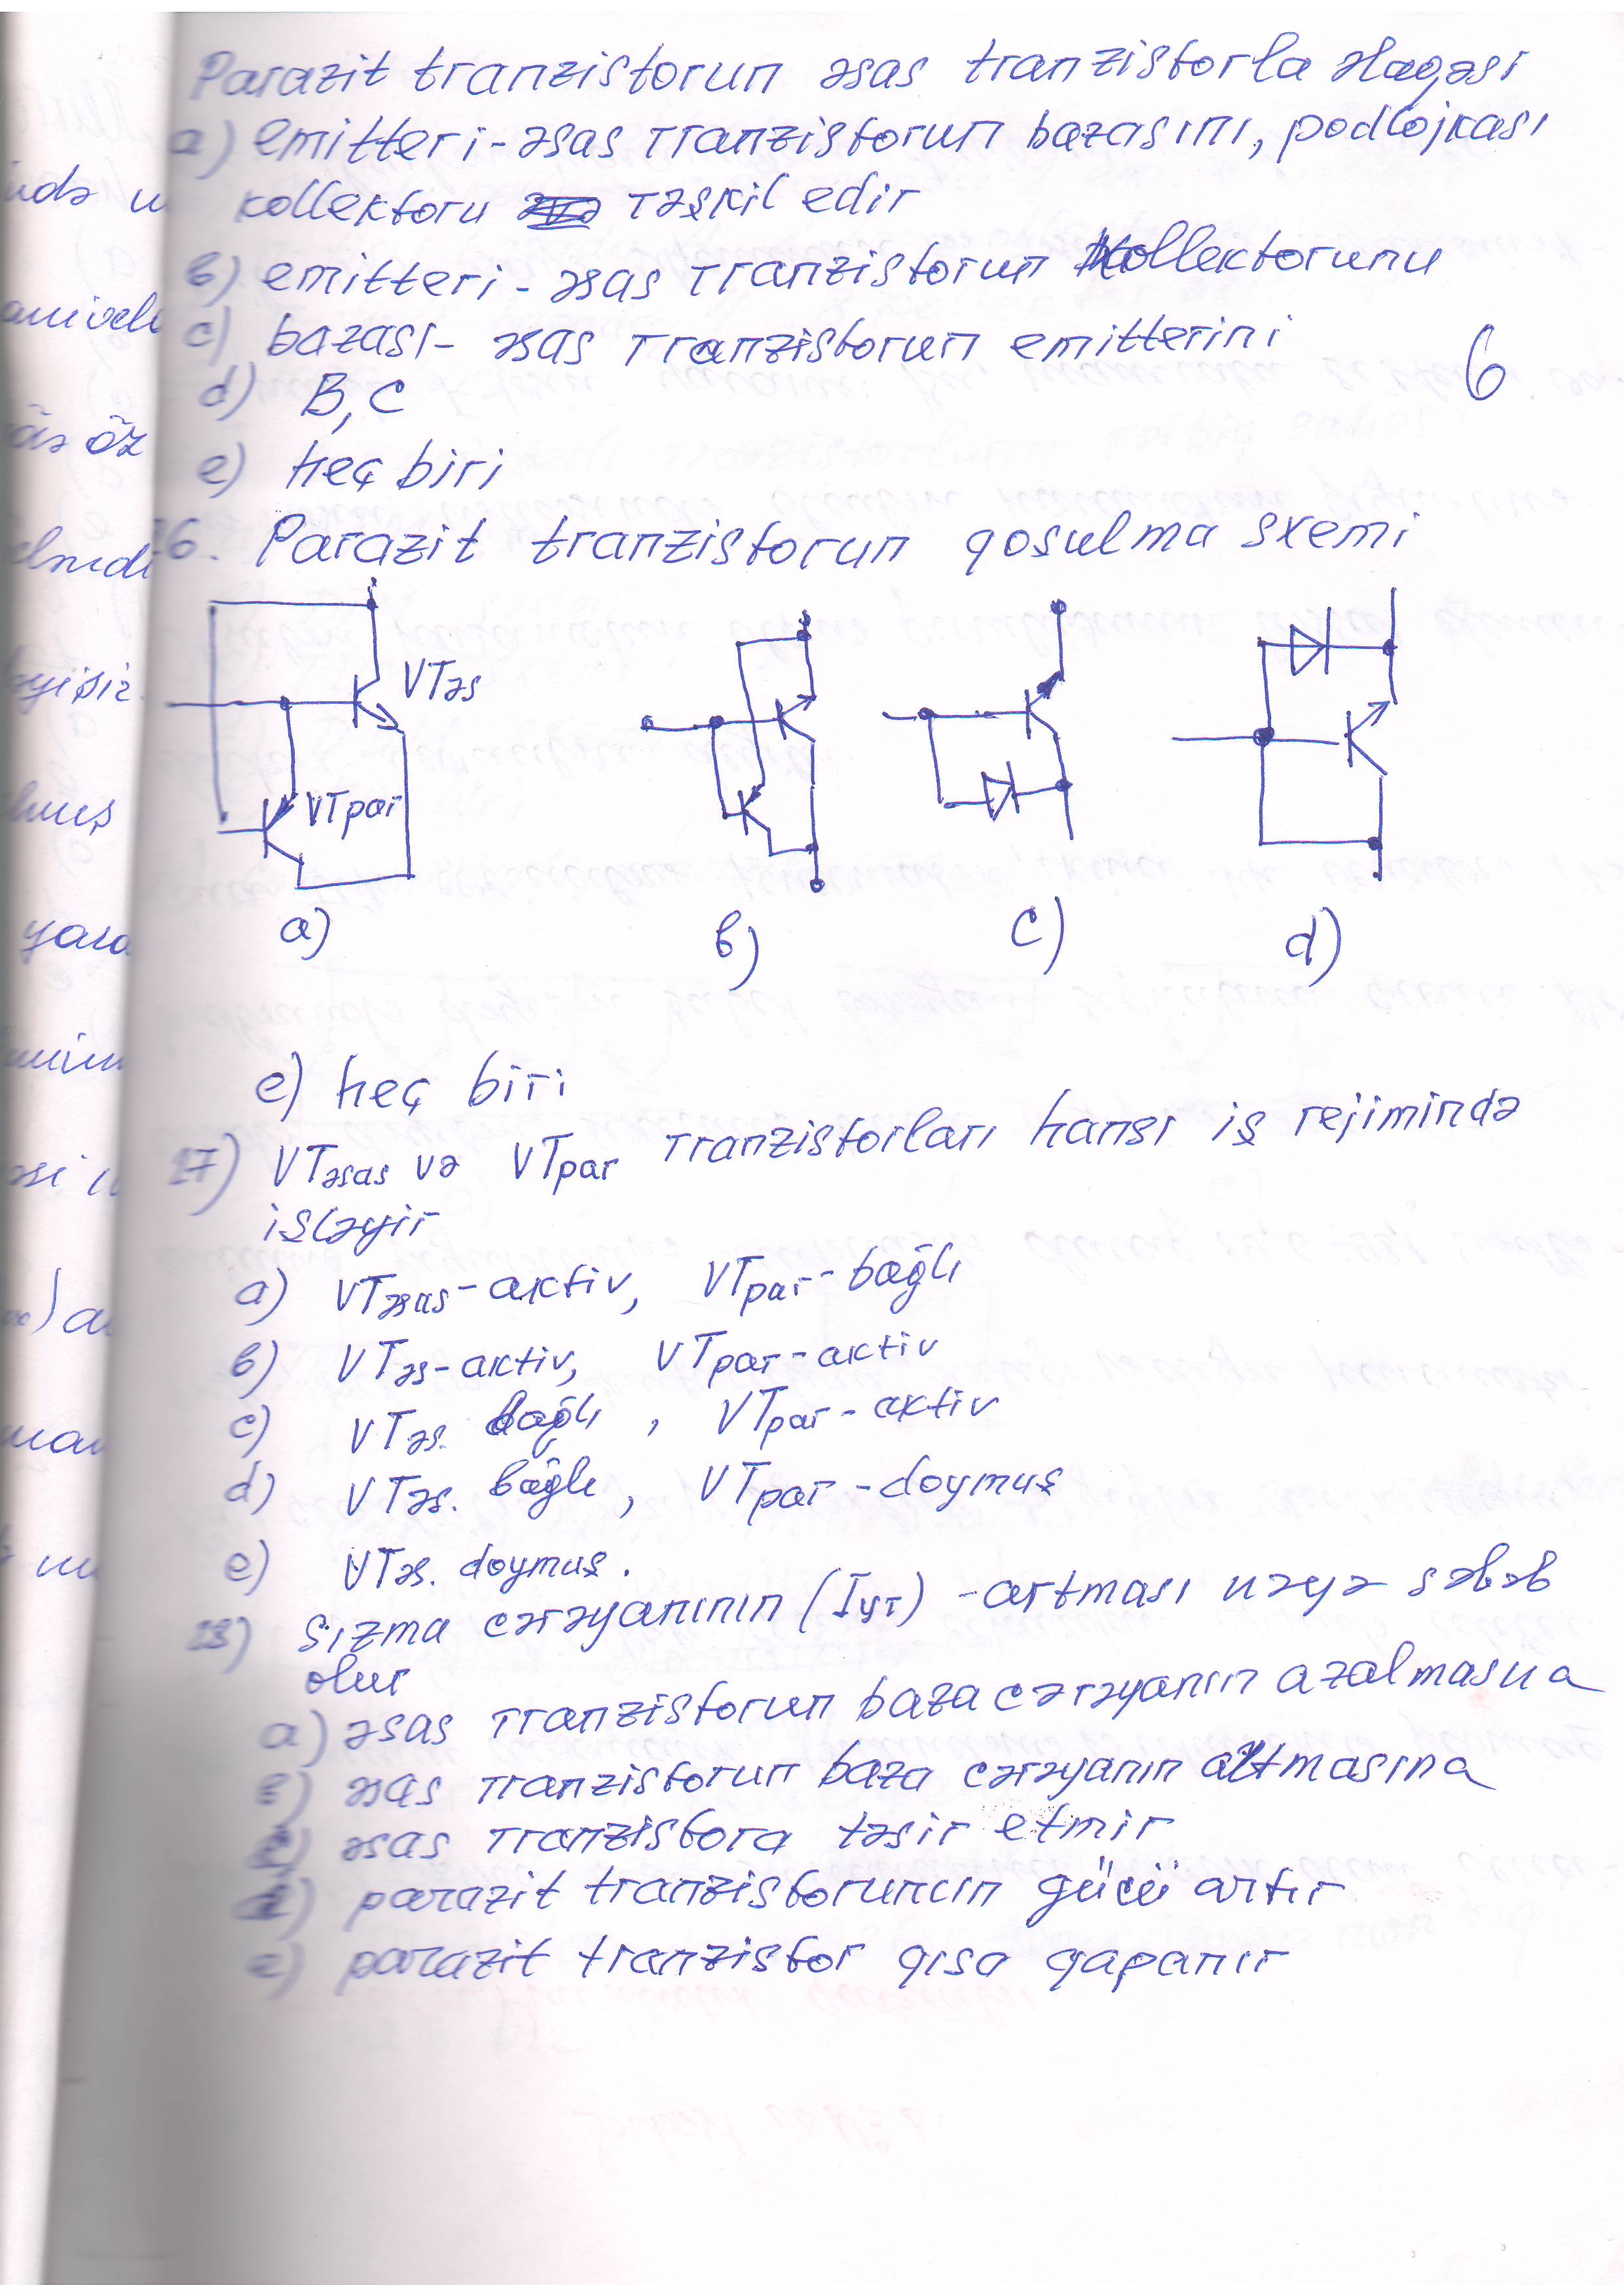 Parazit tranzistorun əsas tranzistorla əlaqəsi
a) emitteri-əsas tranzistorun bazasını, podlojkası
kollektoru təşkil edir
b) emitteri-əsas tranzistorun kollektorunu
c) bazası- əsas tranzistorun emitterini
6
d) B,C
e) heç biri
6. Parazit tranzistorun qosulma sxemi
VTəs
VTpar
a) b) c) d)
e) heç biri
27) VTəsas və VTpar tranzistorları hansı iş rejimində
işləyir
a) VTəsas-aktiv, VTpar-bağlı
b) VTəs-aktiv, VTpar-aktiv
c) VTəs. bağlı, VTpar-aktiv
d) VTəs. bağlı, VTpar-doymuş
e) VTəs. doymuş.
28) Sızma cərəyanının (Iyt) -artması nəyə səbəb
olur
a) əsas tranzistorun baza cərəyanın azalmasına
əsas tranzistorun baza cərəyanın artmasına
əsas tranzistora təsir etmir
parazit tranzistorunun gücü artır
e) parazit tranzistor qısa qapanır